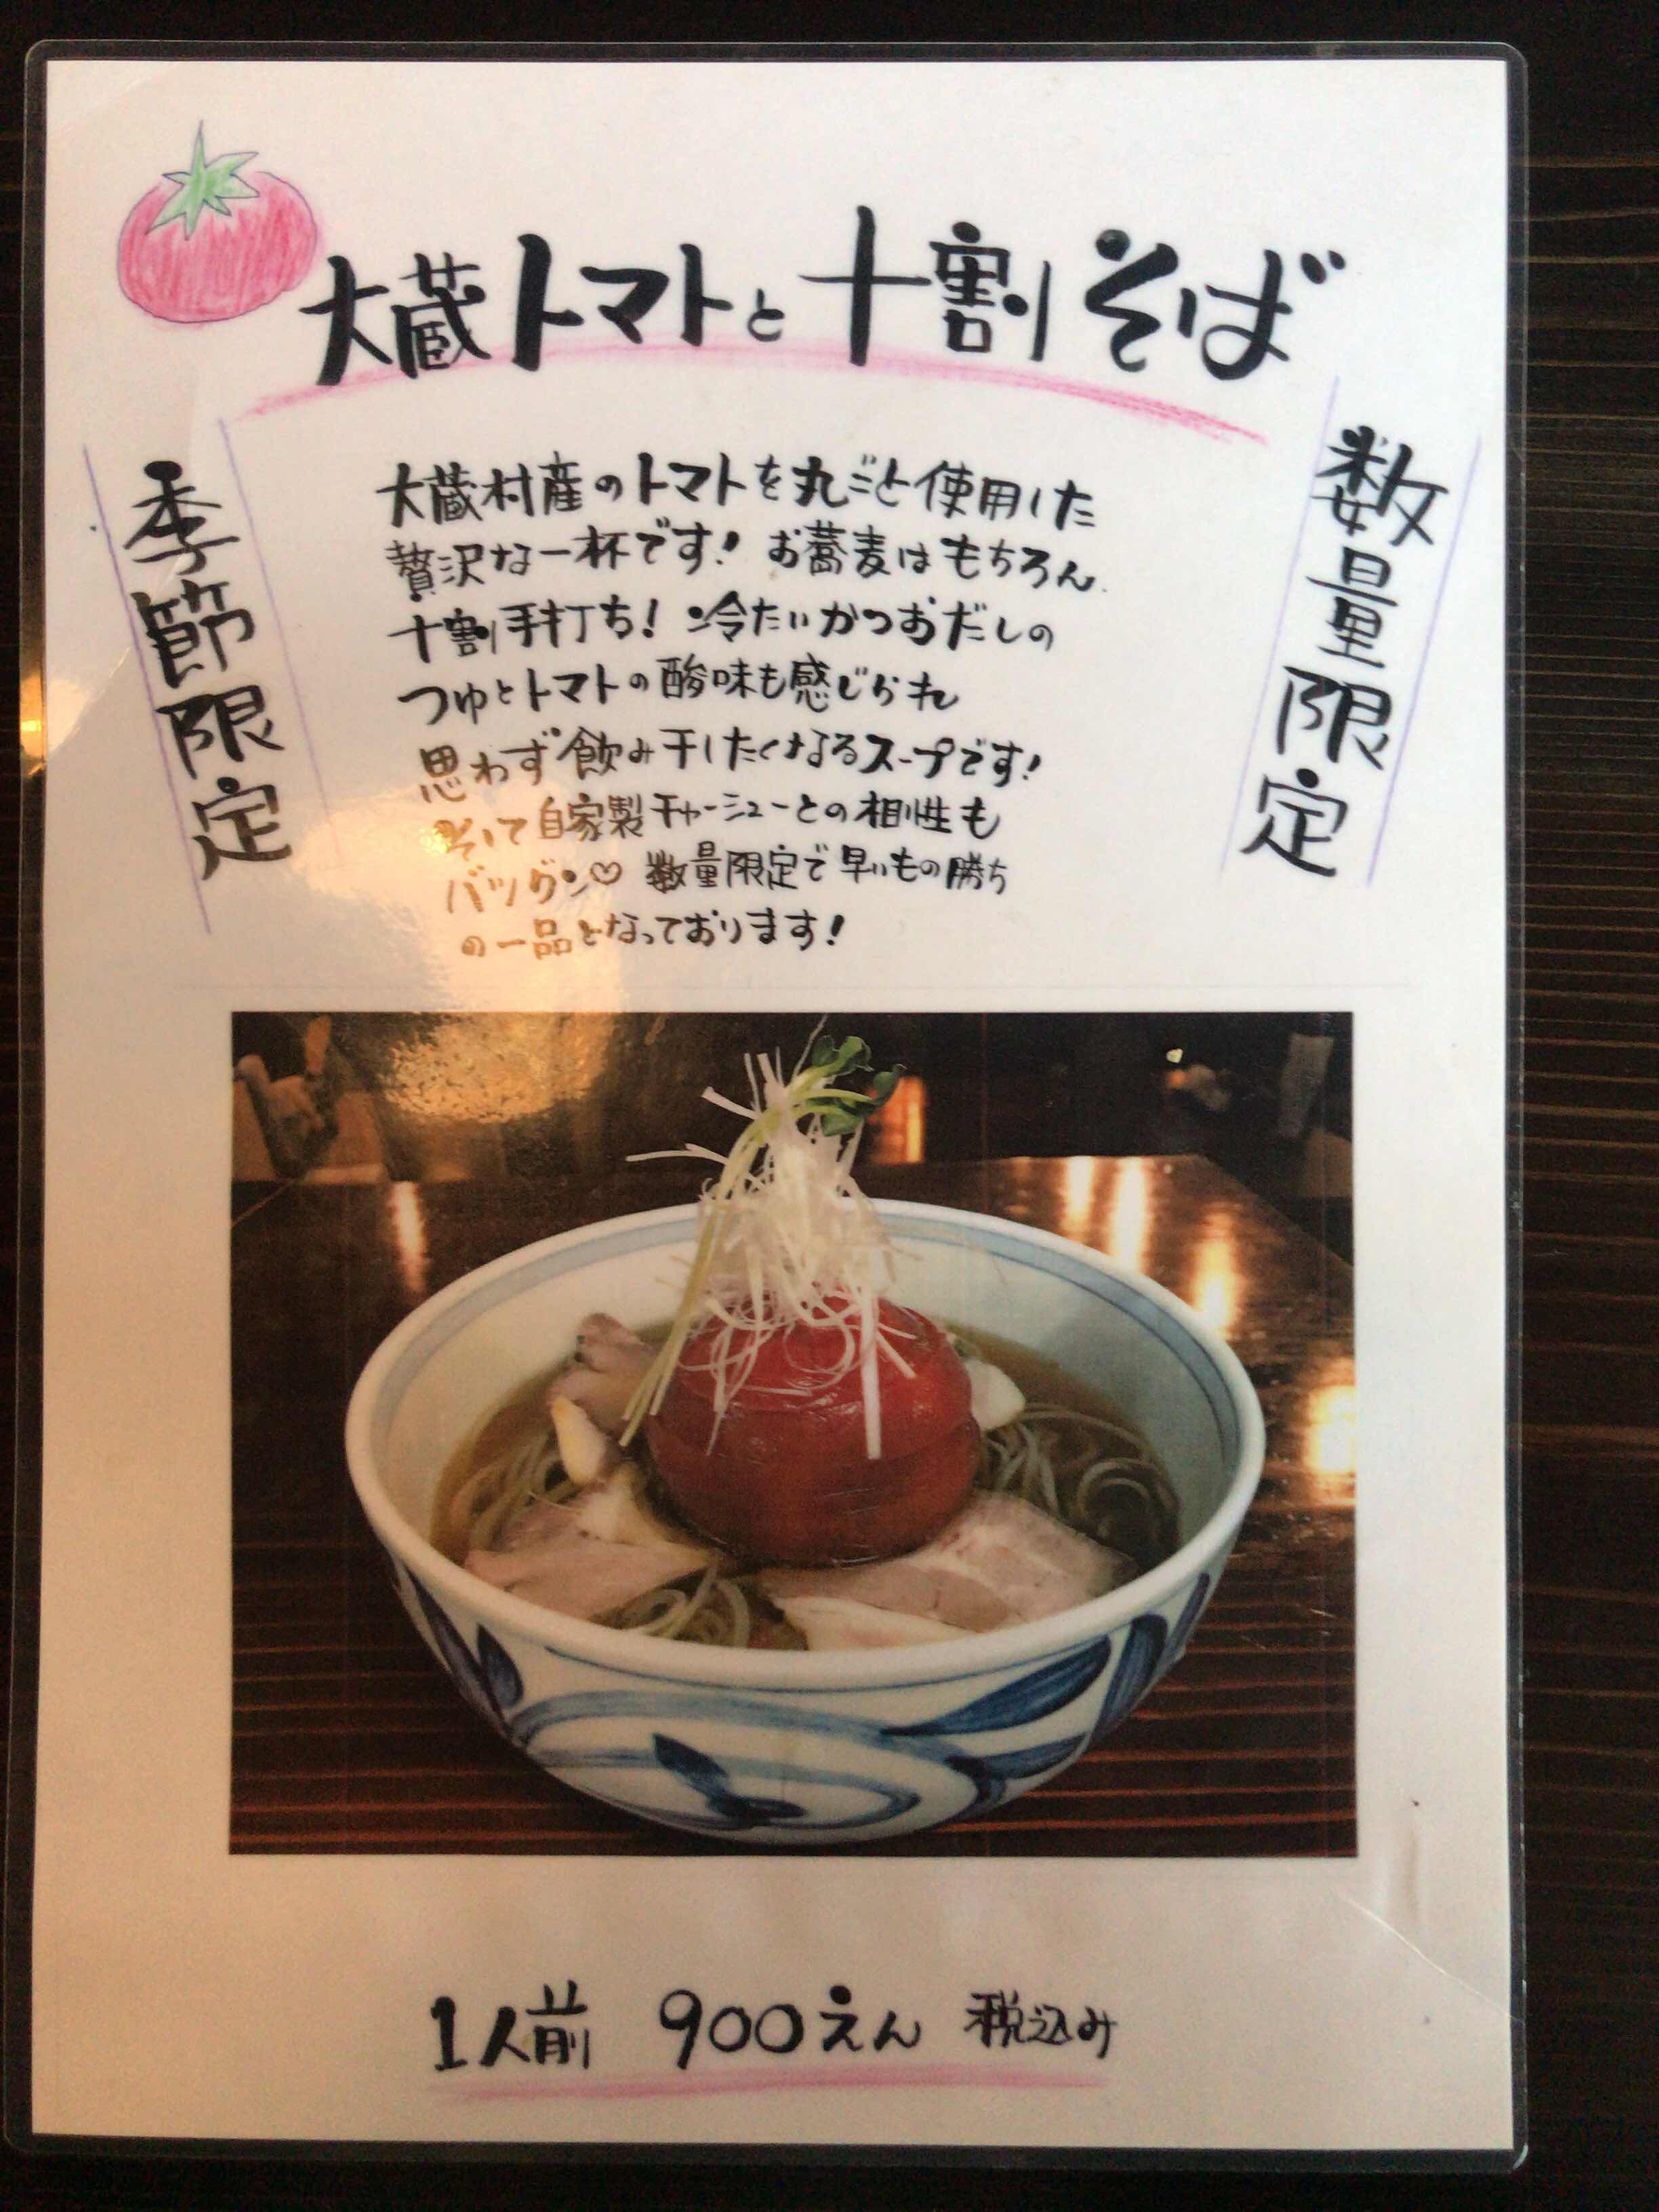 大蔵トマトと十割そば
季節限定
数量限定
大蔵村産のトマトを丸ごと使用した
贅沢な一杯です! お蕎麦はもちろん
十割手打ち! 冷たいかつおだしの
つゆとトマトの酸味も感じられ
思わず飲み干したくなるスープです!
そして自家製チャーシューとの相性も
バツグン♡ 数量限定で早いもの勝ち
の一品となっております!
1人前 900えん 税込み